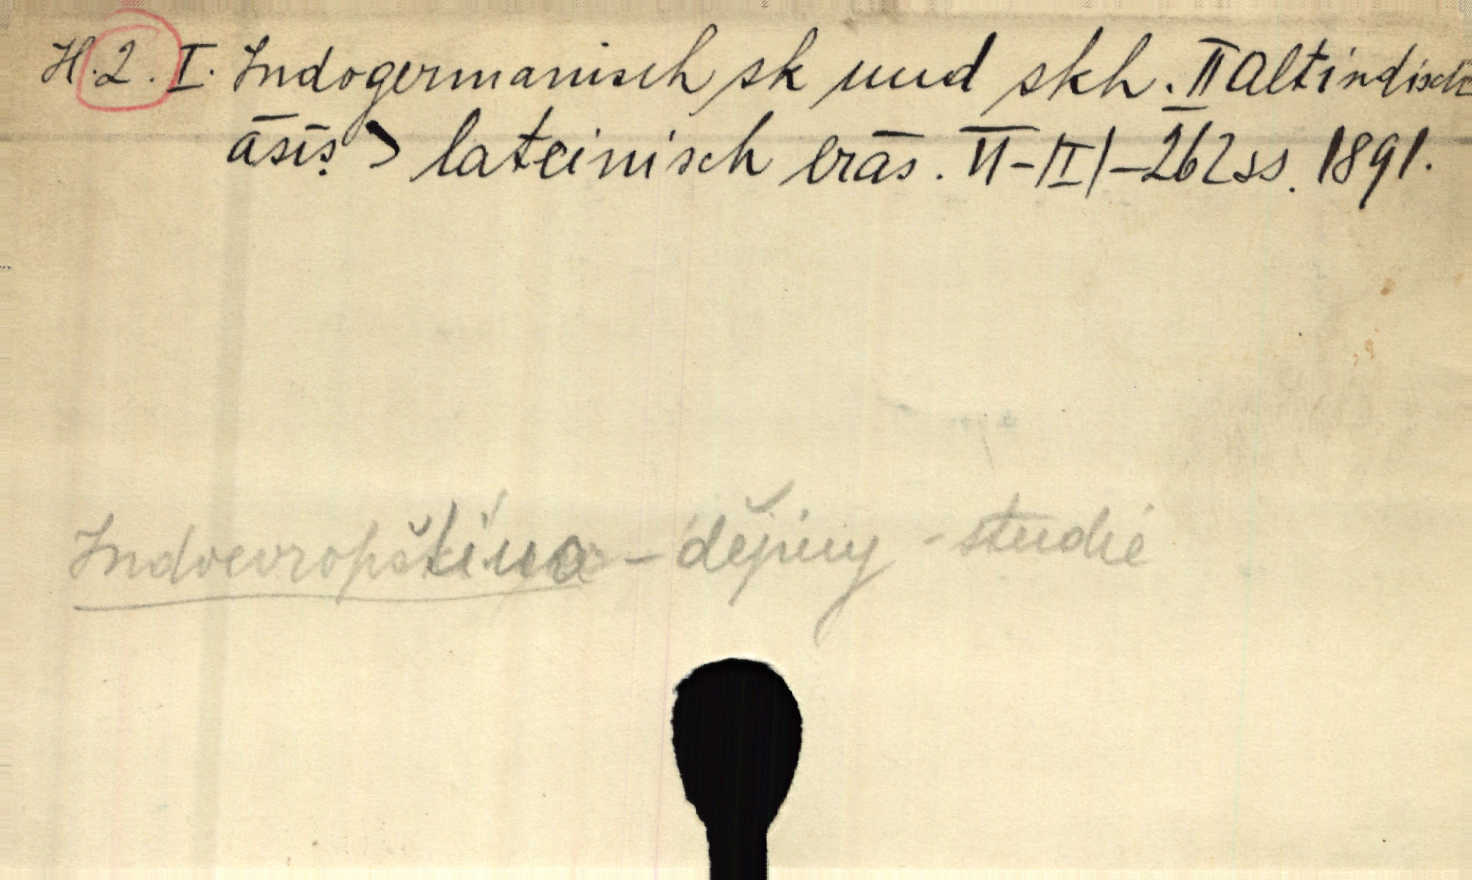 H.2. I. Indogermanisch sk und skh. II Altindisch
āsīṣ > lateinisch erās. VI-/II/-262ss. 1891.
Indoevropština - dějiny - studie